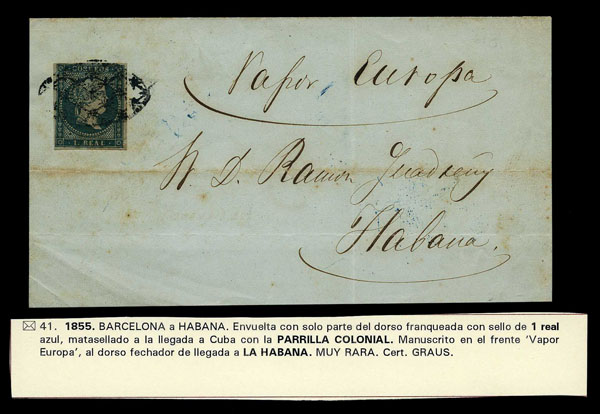 CORREOS
1. REAL
Vapor Europa
D. Ramon
Habana.
41. 1855. BARCELONA a HABANA. Envuelta con solo parte del dorso franqueada con sello de 1 real
azul, matasellado a la llegada a Cuba con la PARRILLA COLONIAL. Manuscrito en el frente 'Vapor
Europa', al dorso fechador de llegada a LA HABANA. MUY RARA. Cert. GRAUS.